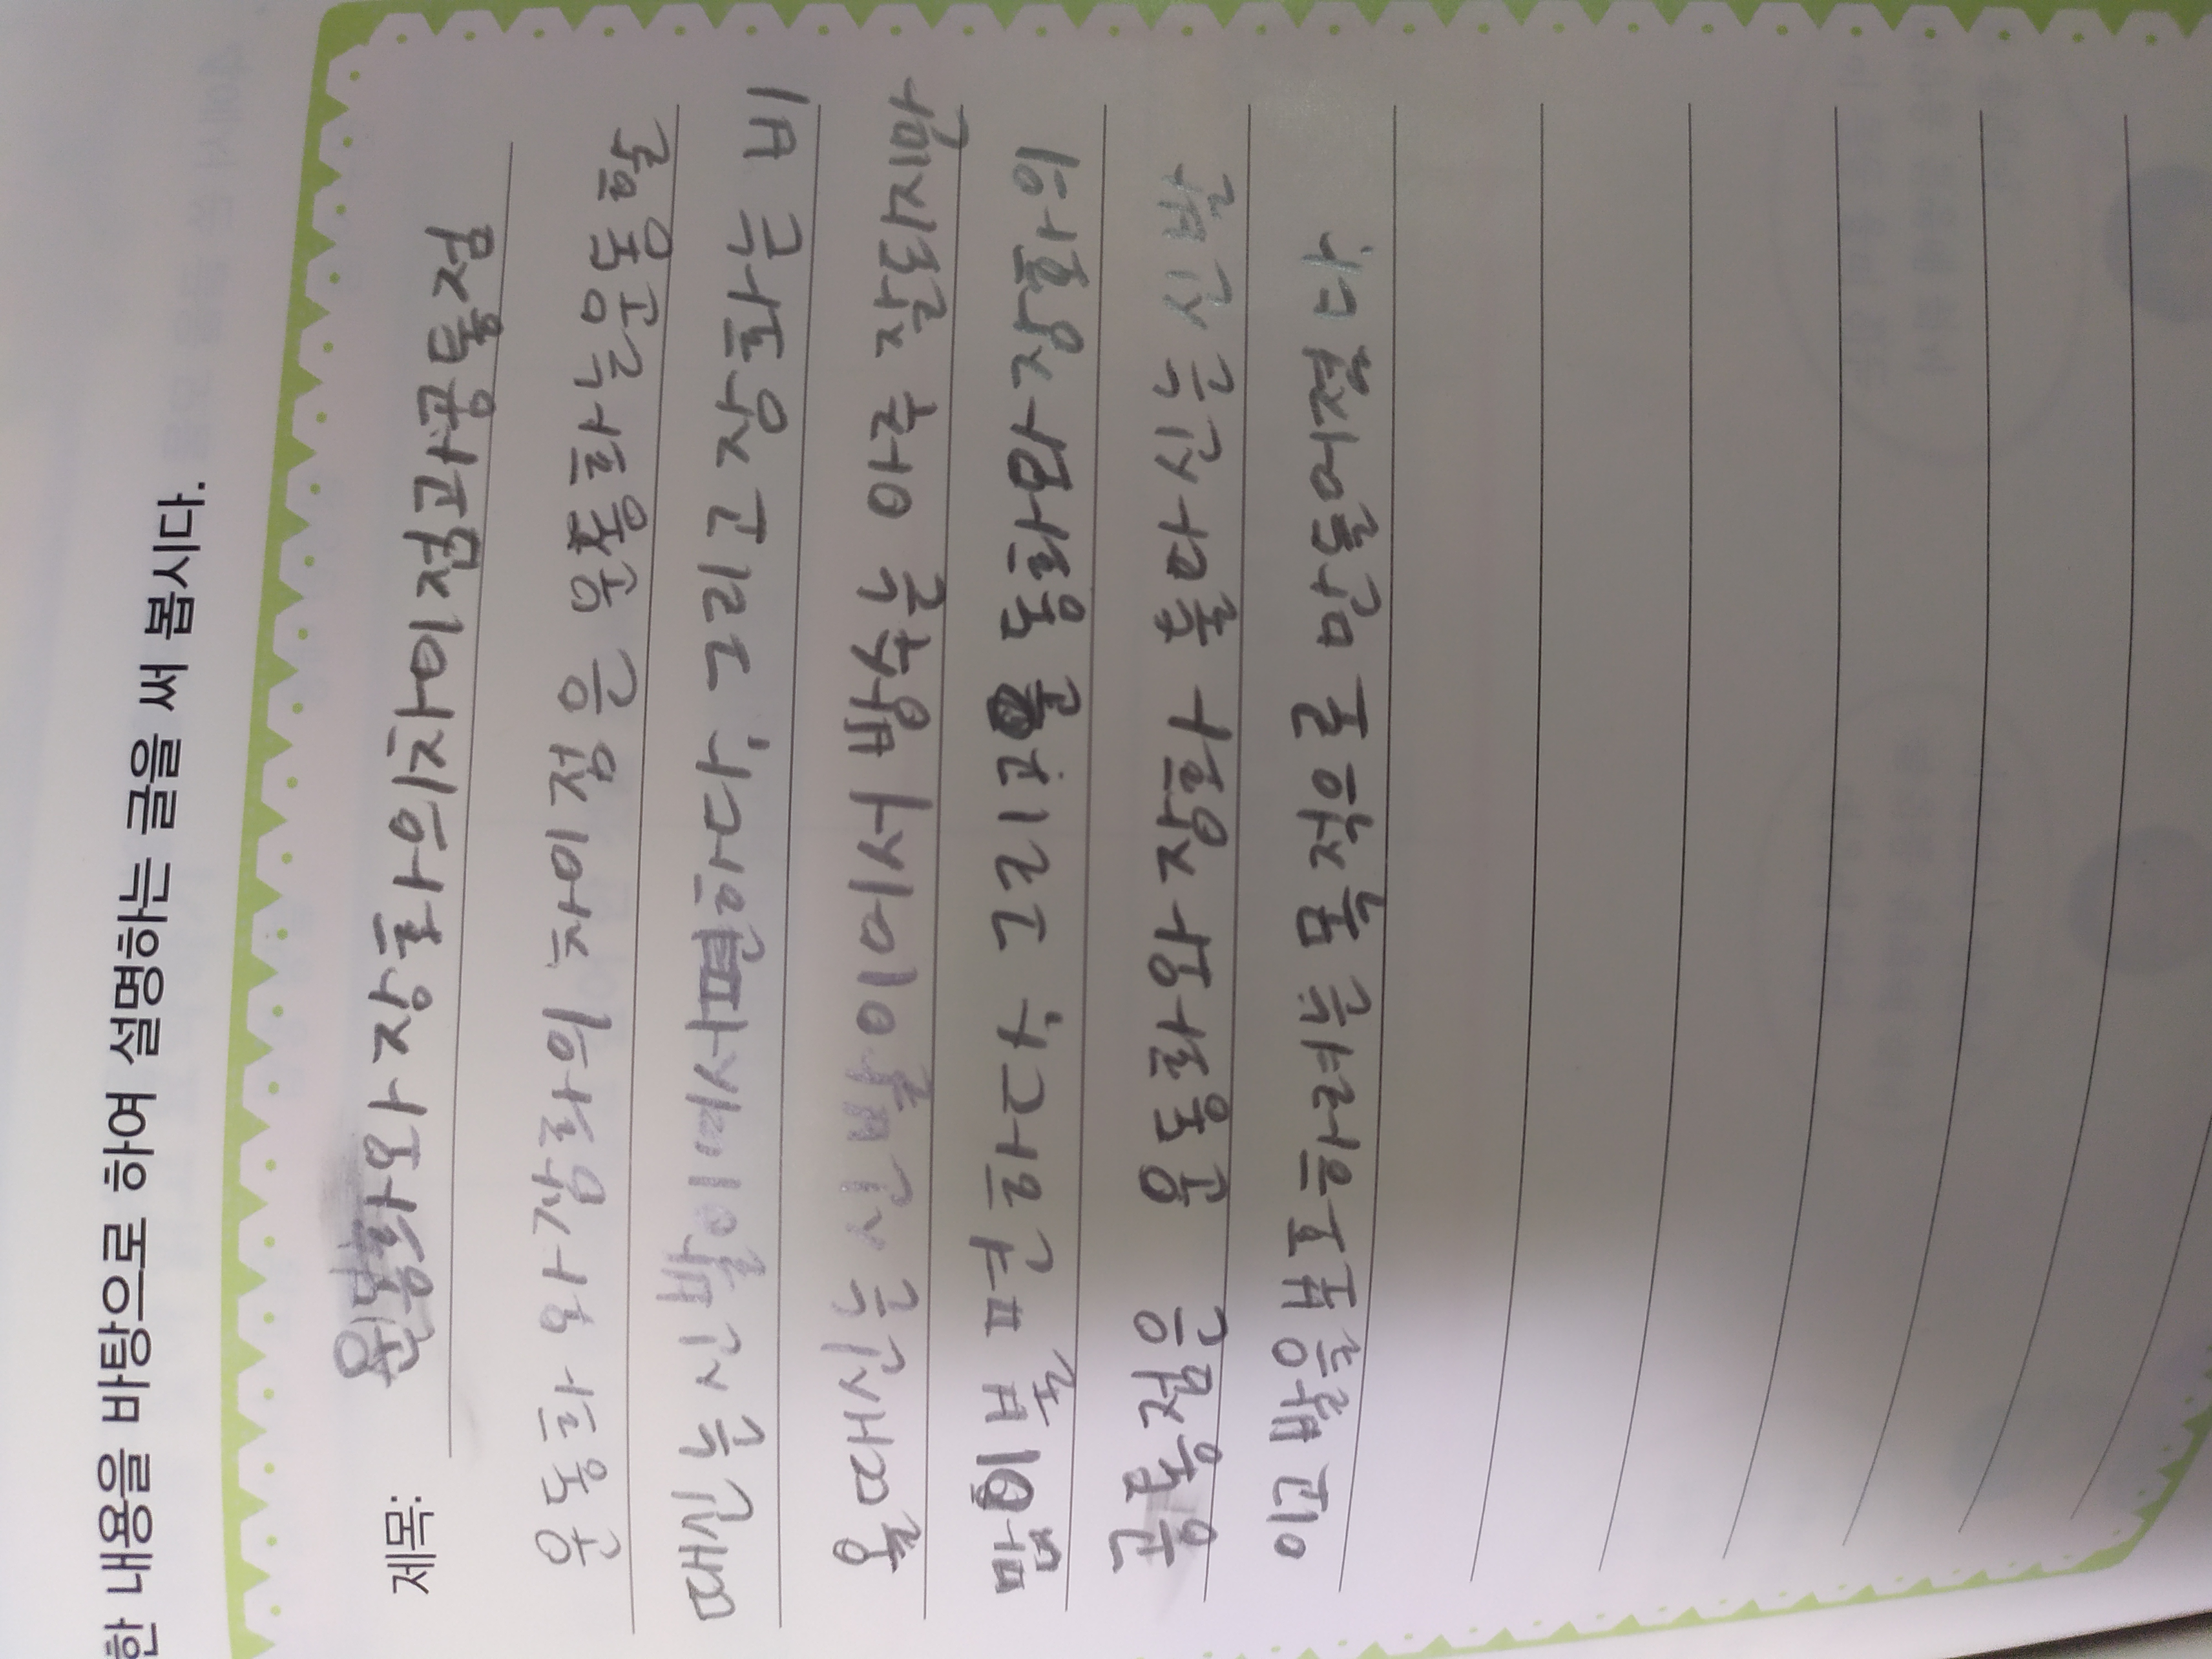 한 내용을 바탕으로 하여 설명하는 글을 써 봅시다.
제목: 운동화와 장화의차이점과공통점
운동화 와장화의 차이점은 운동화는운동할
때신는신발이여서편하다, 그리고장화는 비
올때신는신발이어서 방수는 아주 잘되지만
많이불편하다, 그리고운동화와장화의
공통점은 운동화와장화 둘다신는신발
이고발을보호하려는목적으로 만들어졌다.